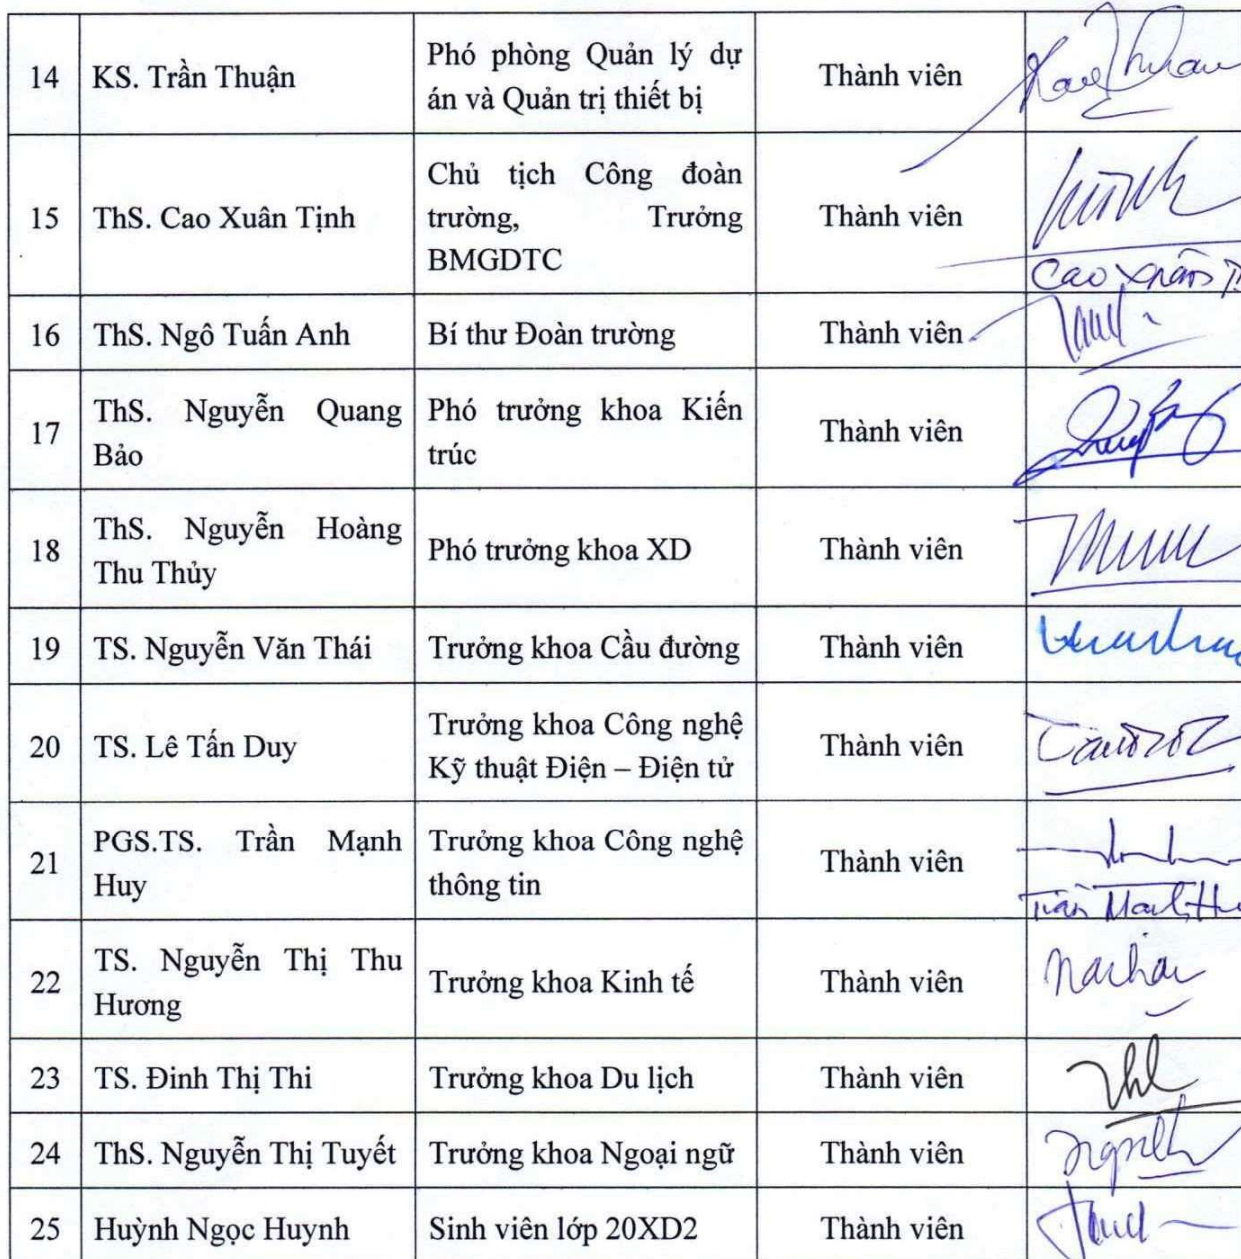 14 KS. Trần Thuận Phó phòng Quản lý dự án và Quản trị thiết bị Thành viên
15 ThS. Cao Xuân Tịnh Chủ tịch Công đoàn trường, Trưởng BMGDTC Thành viên
Cao Xuân
16 ThS. Ngô Tuấn Anh Bí thư Đoàn trường Thành viên
17 ThS. Nguyễn Quang Bảo Phó trưởng khoa Kiến trúc Thành viên
18 ThS. Nguyễn Hoàng Thu Thủy Phó trưởng khoa XD Thành viên
19 TS. Nguyễn Văn Thái Trưởng khoa Cầu đường Thành viên
20 TS. Lê Tấn Duy Trưởng khoa Công nghệ Kỹ thuật Điện – Điện tử Thành viên
21 PGS.TS. Trần Mạnh Huy Trưởng khoa Công nghệ thông tin Thành viên
Trần Mạnh
22 TS. Nguyễn Thị Thu Hương Trưởng khoa Kinh tế Thành viên
23 TS. Đinh Thị Thi Trưởng khoa Du lịch Thành viên
24 ThS. Nguyễn Thị Tuyết Trưởng khoa Ngoại ngữ Thành viên
25 Huỳnh Ngọc Huynh Sinh viên lớp 20XD2 Thành viên